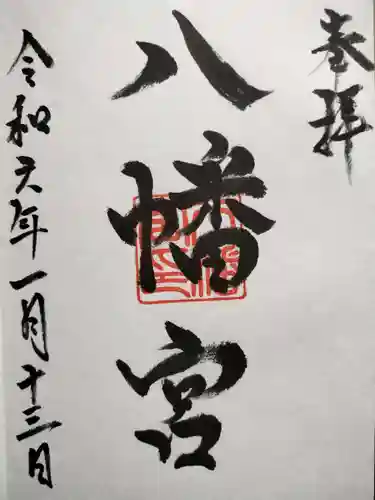 奉拝
八幡宮
令和元年一月十三日